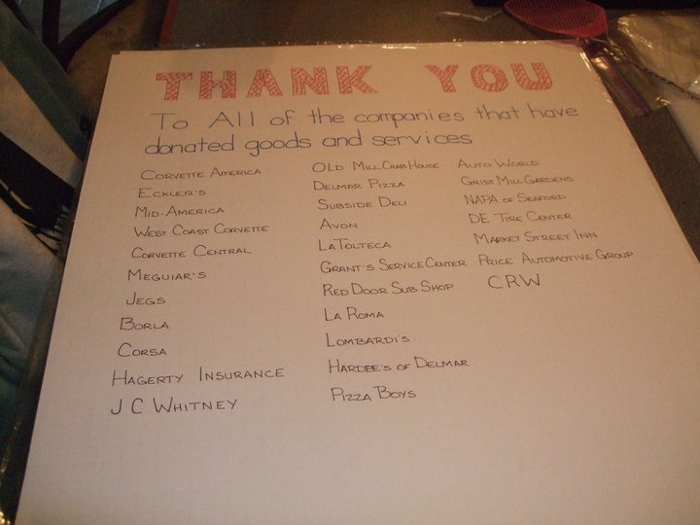 THANK YOU
To All of the companies that have
donated goods and services
CORVETTE AMERICA
ECKLER'S
MID-AMERICA
WEST COAST CORVETTE
CORVETTE CENTRAL
MEGUIAR'S
JEGS
BORLA
CORSA
HAGERTY INSURANCE
J C WHITNEY
OLD MILL CRAB HOUSE
DELMAR PIZZA
SUBSIDE DELI
AVON
LATOLTECA
GRANT'S SERVICE CENTER
RED DOOR SUB SHOP
LA ROMA
LOMBARDI'S
HARDEE'S OF DELMAR
PIZZA BOYS
AUTO WORLD
GRIST MILL GARDENS
NAPA OF SEAFORD
DE TIRE CENTER
MARKET STREET INN
PRICE AUTOMOTIVE GROUP
CRW